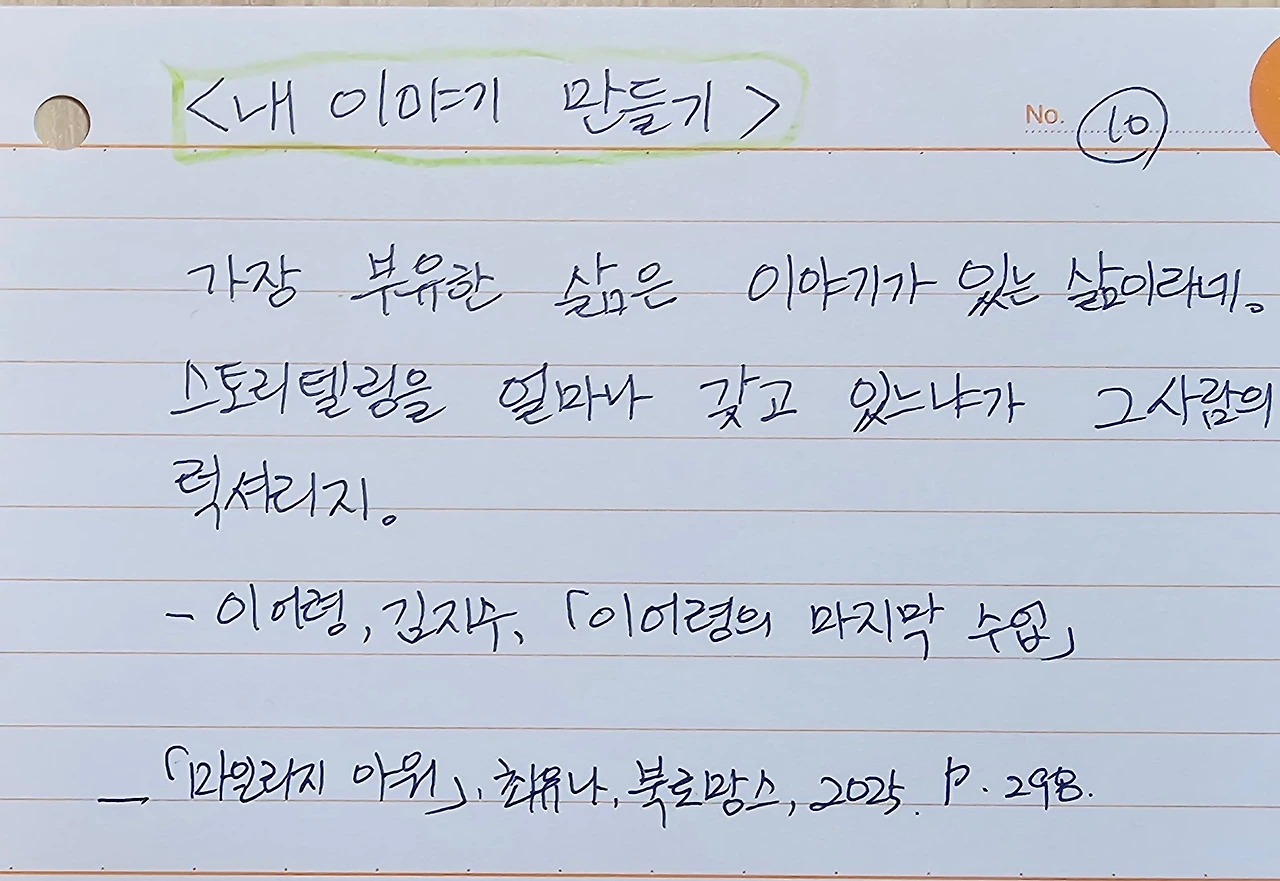 <내 이야기 만들기>
No. 10
가장 부유한 삶은 이야기가 있는 삶이라네.
스토리텔링을 얼마나 갖고 있느냐가 그 사람의
럭셔리지.
- 이어령, 김지수, 「이어령의 마지막 수업」
- 「마일리지 아워」, 최유나, 북로망스, 2025. p. 298.